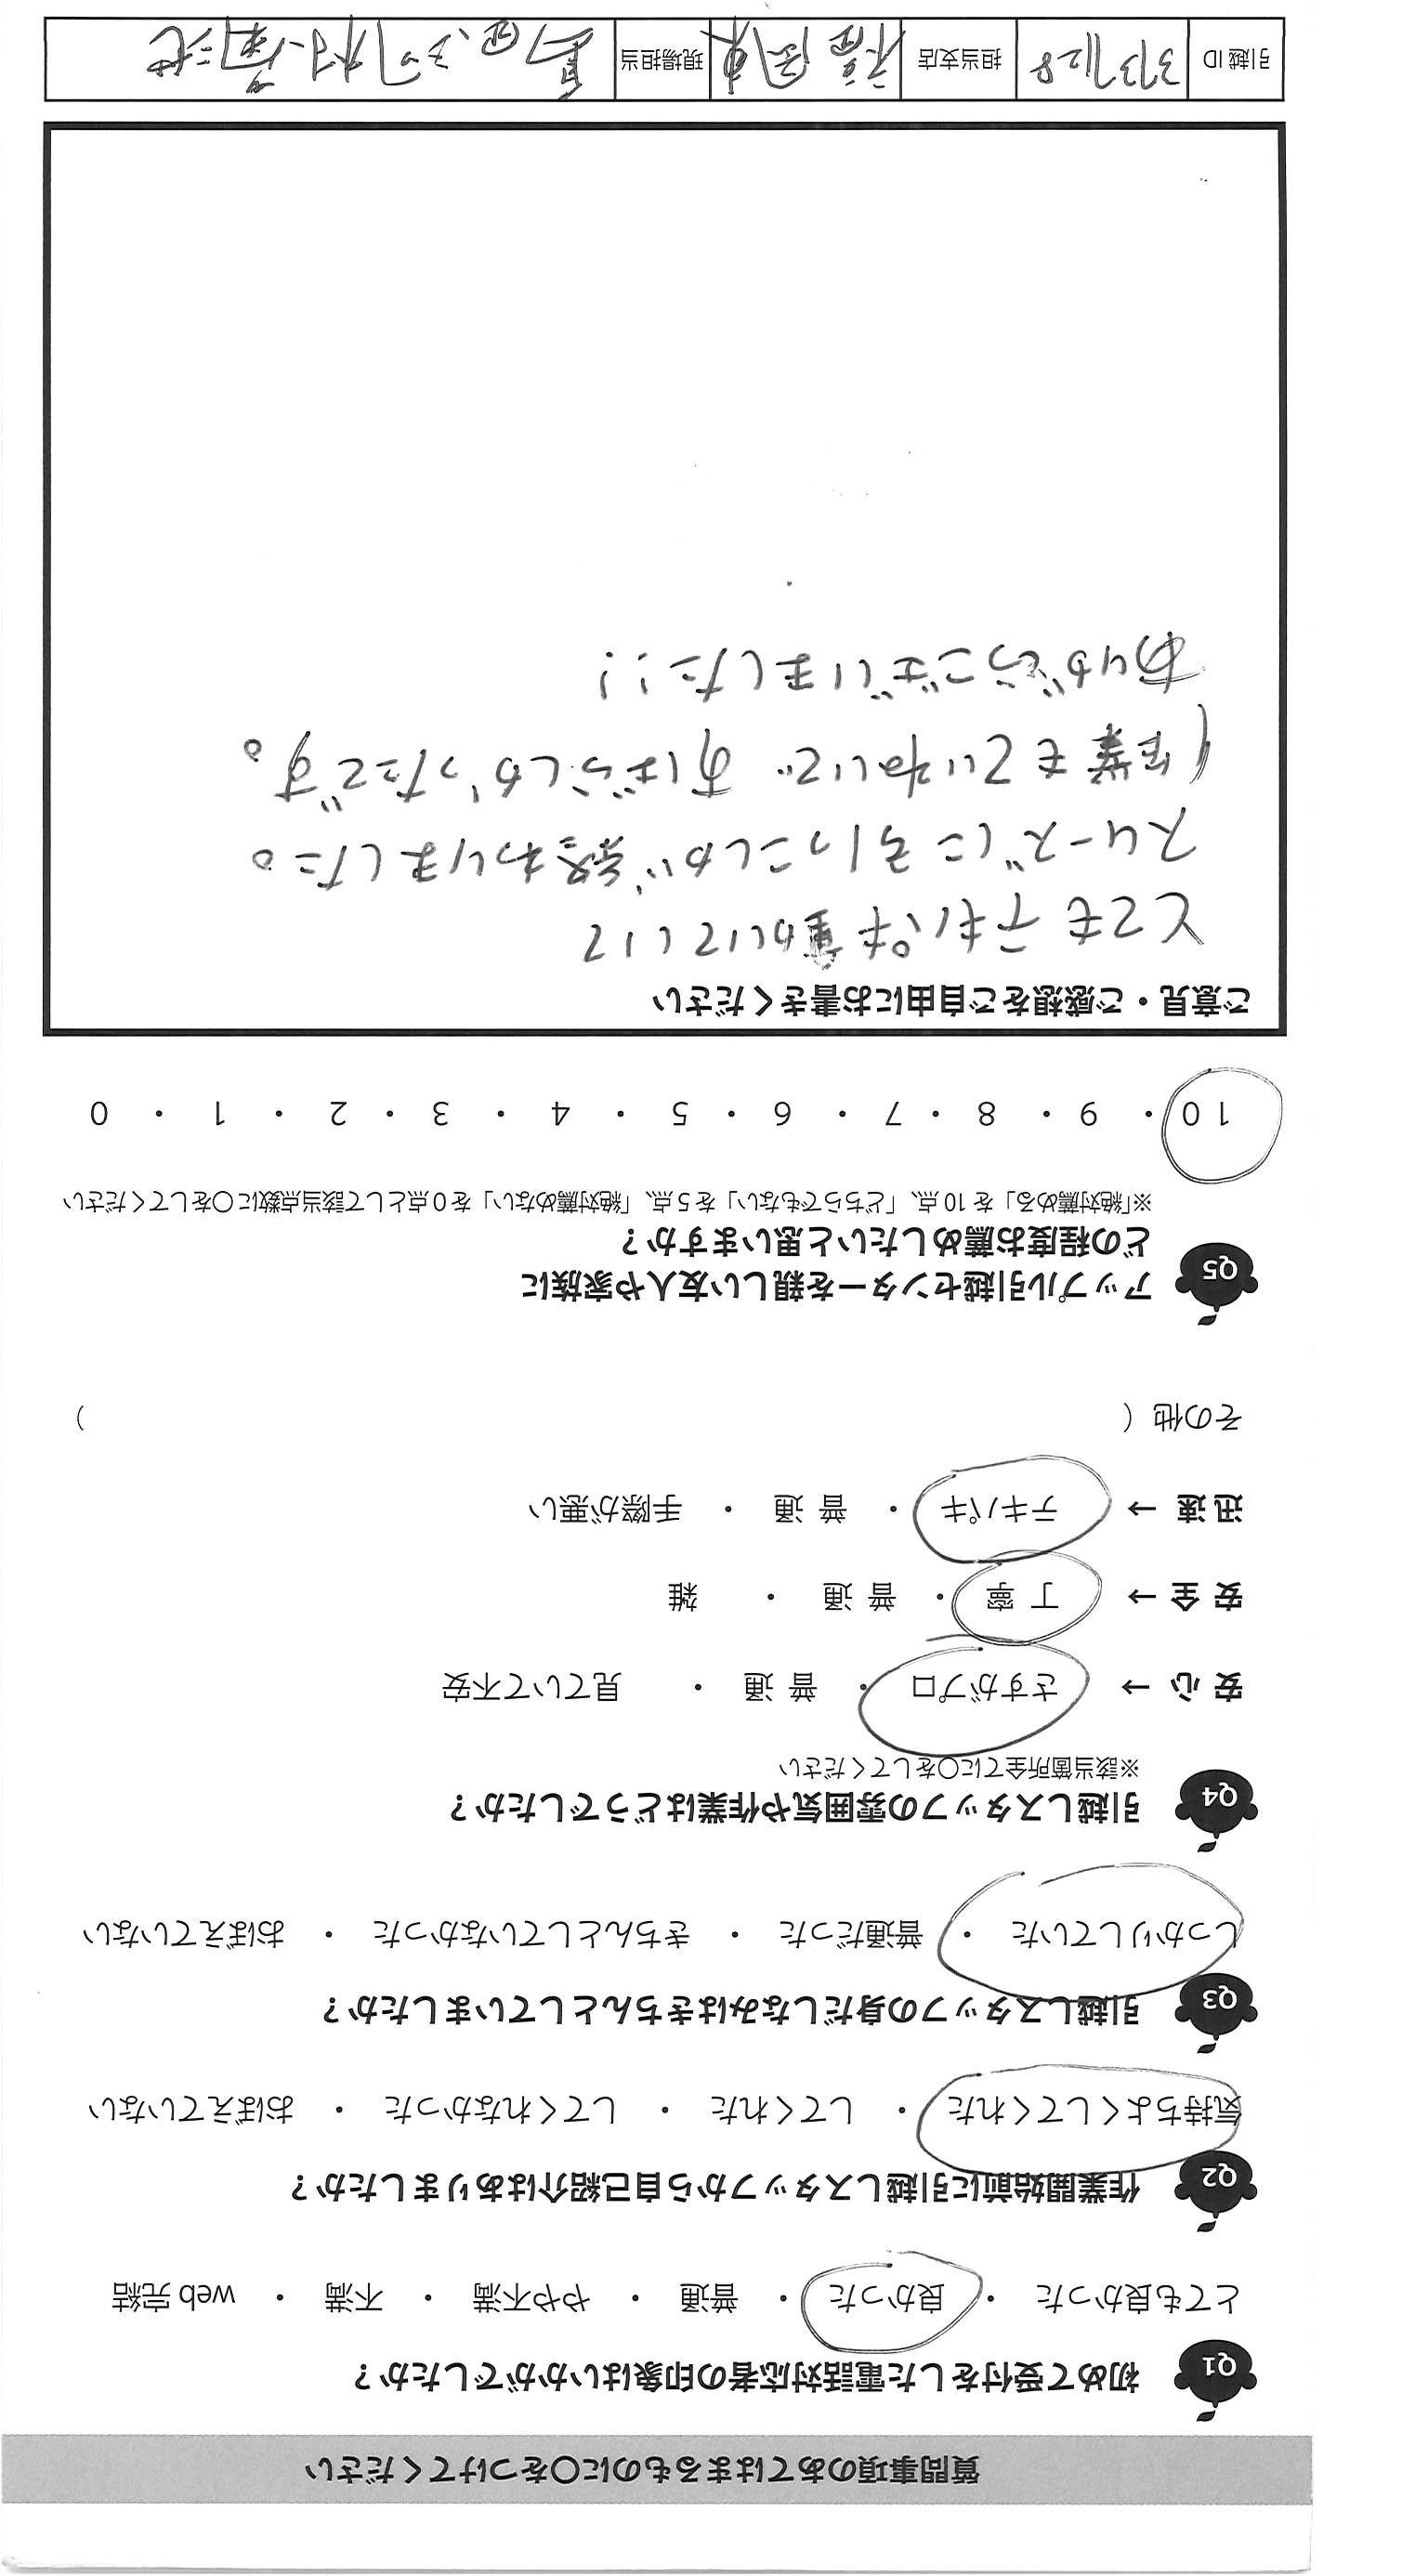 質問事項のあてはまるものに〇をつけてください
Q1 初めて受付をした電話対応者の印象はいかがでしたか？
とても良かった ・ 良かった ・ 普通 ・ やや不満 ・ 不満 ・ web 完結
Q2 作業開始前に引越しスタッフから自己紹介はありましたか？
気持ちよくしてくれた ・ してくれた ・ してくれなかった ・ おぼえていない
Q3 引越しスタッフの身だしなみはきちんとしていましたか？
しっかりしていた ・ 普通だった ・ きちんとしていなかった ・ おぼえていない
Q4 引越しスタッフの雰囲気や作業はどうでしたか？
※該当箇所全てに〇をしてください
安 心 → さすがプロ ・ 普 通 ・ 見ていて不安
安 全 → 丁 寧 ・ 普 通 ・ 雑
迅 速 → テキパキ ・ 普 通 ・ 手際が悪い
その他（ ）
Q5 アップル引越センターを親しい友人や家族に
どの程度お薦めしたいと思いますか？
※「絶対薦める」を 10 点、「どちらでもない」を 5 点、「絶対薦めない」を 0 点として該当点数に〇をしてください
10 ・ 9 ・ 8 ・ 7 ・ 6 ・ 5 ・ 4 ・ 3 ・ 2 ・ 1 ・ 0
ご意見・ご感想をご自由にお書きください
とても テキパキ動いていて
スムーズに引っこしが終わりました。
作業もていねいで すばらしかったです。
ありがとうございました！！
引越 ID 3737128 担当支店 福岡東 現場担当